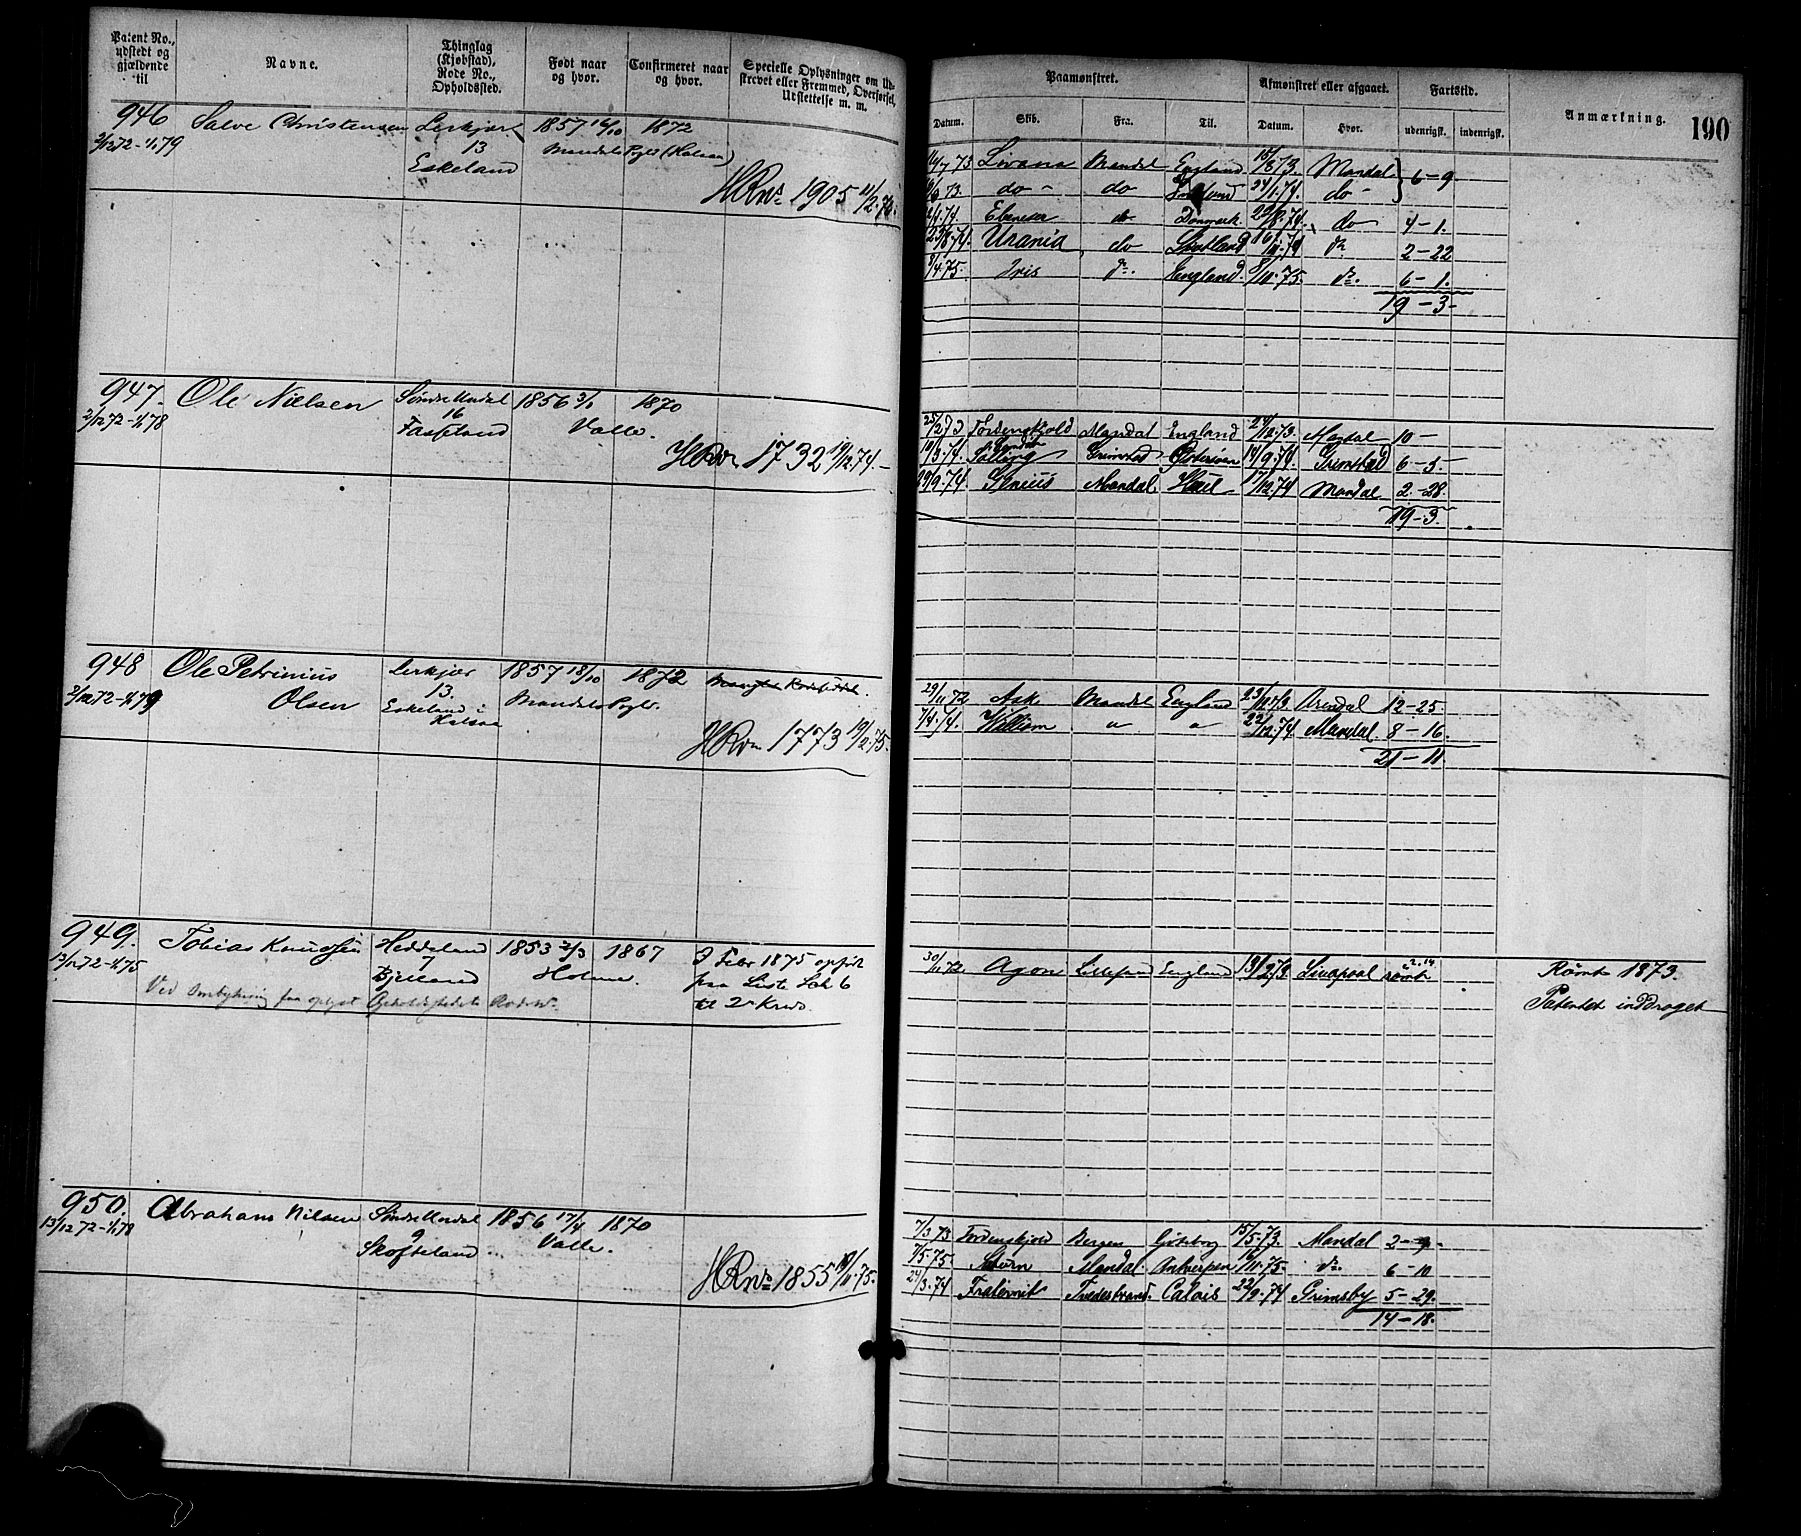 Patent No., udstedt og gjældende til
Navne.
Thinglag (Kjøbstad), Rode No., Opholdssted.
Født naar og hvor.
Confirmeret naar og hvor.
Specielle Oplysninger om Udstrevet eller Fremmed, Overførsel, Udslettelse m. m.
946 Salve Christensen Lerkjær 1857 16/10 1872
2/12 72 - 1/1 79 13 Mandals Pgld (Halsaa)
Eskeland
HRNo 1905 11/2 76.
947. Ole Nielsen Søndre Undal 1856 3/1 1870
2/12 72 - 1/1 78 16 Valle.
Fasseland
HRNo 1732 19/12 74.
948 Ole Petrinius Lerkjær 1857 18/10 1872
2/12 72 - 1/1 79 Olsen 13. Mandals Pgld.
Eskeland i Halsaa
HRNo 1773 19/2 75.
949. Tobias Knudsen Heddeland 1853 2/3 1867 I Febr 1875 opført
13/12 72 - 1/1 75 7 Holme. paa Liste Lit. 6
Bjelland til 2n Kreds.
Ved Ombytning faa oplyst Opholdsstedets Rodeno.
950. Abraham Nilsen Søndre Undal 1856 17/4 1870
13/12 72 - 1/1 78 9 Valle.
Skofteland
HRNo 1855 19/11 75.
Paamønstret.
Afmønstret eller afgaaet.
Fartstid.
Anmærkning.
190
Datum. Skib. Fra. Til. Datum. Hvor. udenrigsk. indenrigsk.
14/7 73 Livana Mandal England 15/8 73. Mandal 6 - 9
do - do 24/1 74. do -
Ebeneser do Danmark. 22/8 74. do 4 - 1.
23/8 74. Urania do 16/11 74 do 2 - 22
7/4 75. Iris do. England 8/10 75. do. 6 - 1.
19 - 3 -
25/2 73 Tordenskjold Mandal England 24/12 73. Mandal 10 -
19/3 74. Grimstad Østersøen 14/9 74. Grimstad 6 - 5 -
29/9 74. Genius Mandal Hull 17/12 74 Mandal 2 - 28.
19 - 3.
29/11 72 Ask Mandal England 23/11 73 Arendal 12 - 25.
7/4 74. William " " 22/12 74 Mandal 8 - 16.
21 - 11
30/11 72 Agon Lillesand England 13/2 73 Liverpool rømt 2.14 Rømt 1873.
Patentet inddraget
7/3 73 Tordenskjold Bergen Gøteborg 15/5 73. Mandal 2 - 9 -
7/5 75 Mandal. Antwerpen 16/11 75. do. 6 - 10
24/3 74 Fraternit Tvedestrand. Calais 22/9 74 Grimsby 5 - 29.
14 - 18.